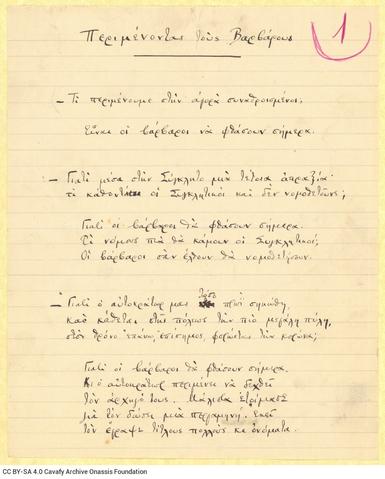 Περιμένοντας τοὺς Βαρβάρους
1
— Τί περιμένουμε στὴν ἀγορὰ συναθροισμένοι;
Εἶναι οἱ βάρβαροι νὰ φθάσουν σήμερα.
— Γιατί μέσα στὴν Σύγκλητο μιὰ τέτοια ἀπραξία·
τί κάθοντ' οἱ Συγκλητικοὶ καὶ δὲν νομοθετοῦνε;
Γιατὶ οἱ βάρβαροι θὰ φθάσουν σήμερα.
Τί νόμους πιὰ θὰ κάμουν οἱ Συγκλητικοί;
Οἱ βάρβαροι σὰν ἔλθουν θὰ νομοθετήσουν.
— Γιατί ὁ αὐτοκράτωρ μας τόσο πρωῒ σηκώθη,
καὶ κάθεται στῆς πόλεως τὴν πιὸ μεγάλη πύλη,
στὸν θρόνο ἐπάνω, ἐπίσημος, φορώντας τὴν κορώνα;
Γιατὶ οἱ βάρβαροι θὰ φθάσουν σήμερα.
Κι ὁ αὐτοκράτωρ περιμένει νὰ δεχθεῖ
τὸν ἀρχηγό τους. Μάλιστα ἑτοίμασε
γιὰ νὰ τὸν δώσει μιὰ περγαμηνή. Ἐκεῖ
τὸν ἔγραψε τίτλους πολλοὺς κι ὀνόματα.
CC BY-SA 4.0 Cavafy Archive Onassis Foundation